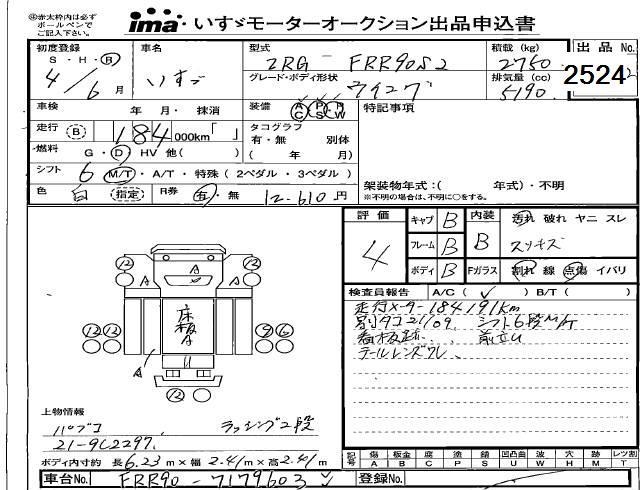 ※赤太枠内は必ず
ボールペンで
ご記入下さい。
ima いすゞモーターオークション出品申込書
初度登録 車名 型式 積載 (kg) 出品 No.
S・H・R 2RG - FRR90S2 2750
4/6月 いすゞ グレード・ボディ形状 排気量 (cc) 2524
ウイング 5190
車検 年 月・ 抹消 装備 AC PS PW 特記事項
走行 (R) 184 000km「 」 タコグラフ
有・無 別体
燃料 G・D・HV 他( ) ( 年 月)
シフト 6 M/T・A/T・特殊(2ペダル・3ペダル) 架装物年式:( 年式)・不明
色 白 (指定) R券 有・無 12,610円 ※不明の場合は、不明に○をする。
評価 キャブ B 内装 汚れ 破れ ヤニ スレ
4 フレーム B B スリキズ
ボディ B Fガラス 割れ 線 点傷 イバリ
検査員報告 A/C( ✓ ) B/T( )
走行メーター184191km
別タコ21109. シフト6段M/T
看板跡、
テールレンズワレ
12 12
A A
床板A
12 12 9 6
A
12
上物情報
パブコ ラッシング2段
21-9C2297.
ボディ内寸約 長6.23m×幅2.41m×高2.41m
記号 傷 板金 腐 塗 錆 凹凸曲 波 穴 跡 レツ割
A B C P S U W H M T
車台No. FRR90-7179603 登録No.